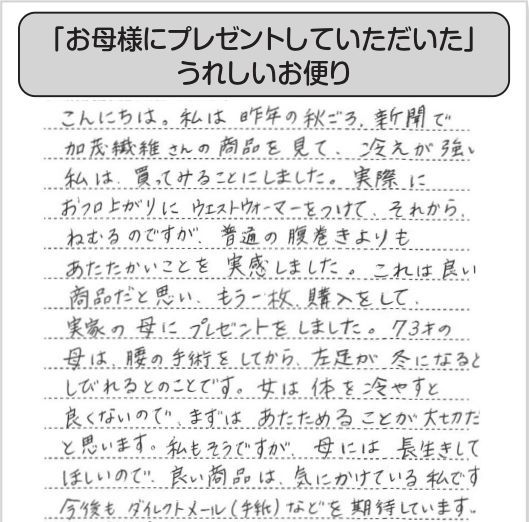 「お母様にプレゼントしていただいた」
うれしいお便り
こんにちは。私は 昨年の秋ごろ、新聞で
加茂繊維さんの商品を見て、冷えが強い
私は、買ってみることにしました。実際に
おフロ上がりに ウエストウォーマーをつけて、それから、
ねむるのですが、普通の腹巻きよりも
あたたかいことを 実感しました。これは良い
商品だと思い、もう一枚、購入をして、
実家の母に プレゼントをしました。73才の
母は、腰の手術をしてから、左足が 冬になると
しびれるとのことです。女は 体を冷やすと
良くないので、まずは あたためることが大切だ
と思います。私もそうですが、母には 長生きして
ほしいので、良い商品は、気にかけている私です
今後も ダイレクトメール(手紙)などを期待しています。